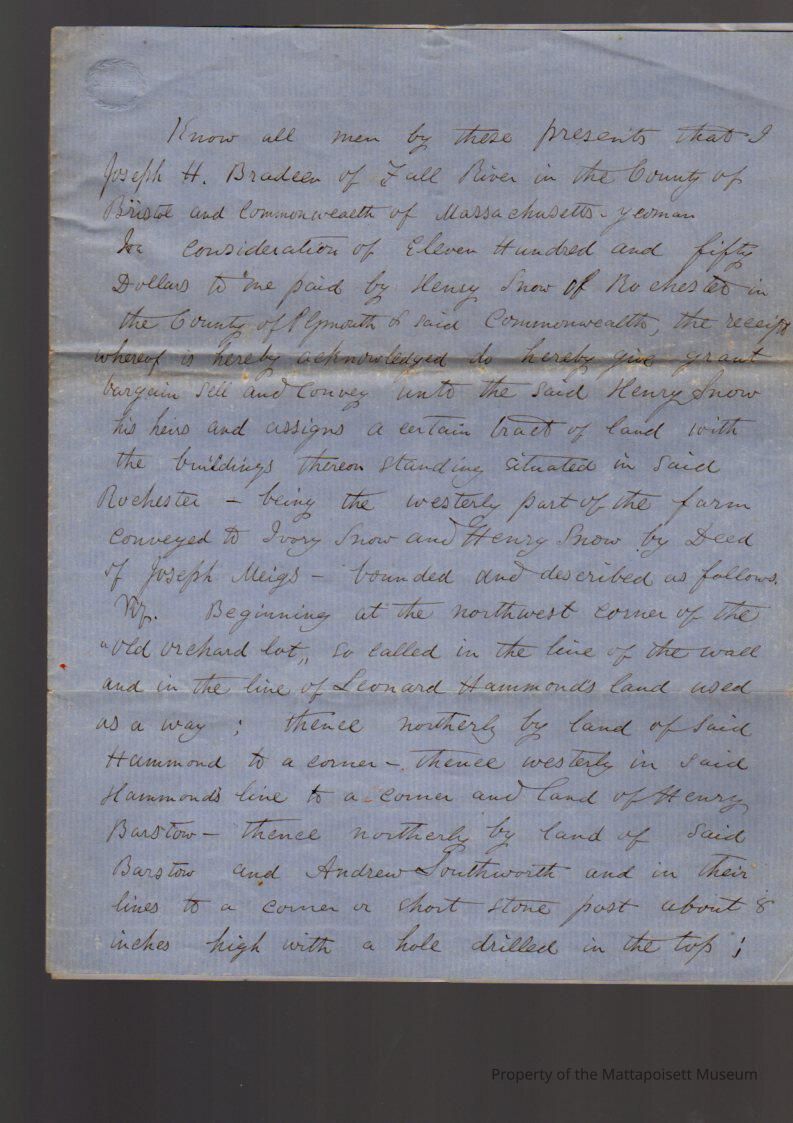 Know all men by these presents that I
Joseph H. Bradeen of Fall River in the County of
Bristol and Commonwealth of Massachusetts - yeoman
In consideration of Eleven Hundred and fifty
Dollars to me paid by Henry Snow of Rochester in
the County of Plymouth & said Commonwealth, the receipt
whereof is hereby acknowledged do hereby give grant
bargain sell and convey unto the said Henry Snow
his heirs and assigns a certain tract of land with
the buildings thereon standing situated in said
Rochester - being the westerly part of the farm
conveyed to Ivory Snow and Henry Snow by Deed
of Joseph Meigs - bounded and described as follows.
Viz. Beginning at the northwest corner of the
"old orchard lot" so called in the line of the wall
and in the line of Leonard Hammonds land used
as a way ; thence northerly by land of said
Hammond to a corner - thence westerly in said
Hammond's line to a corner and land of Henry
Barstow - thence northerly by land of said
Barstow and Andrew Southworth and in their
lines to a corner or short stone post about 8
inches high with a hole drilled in the top ;
Property of the Mattapoisett Museum